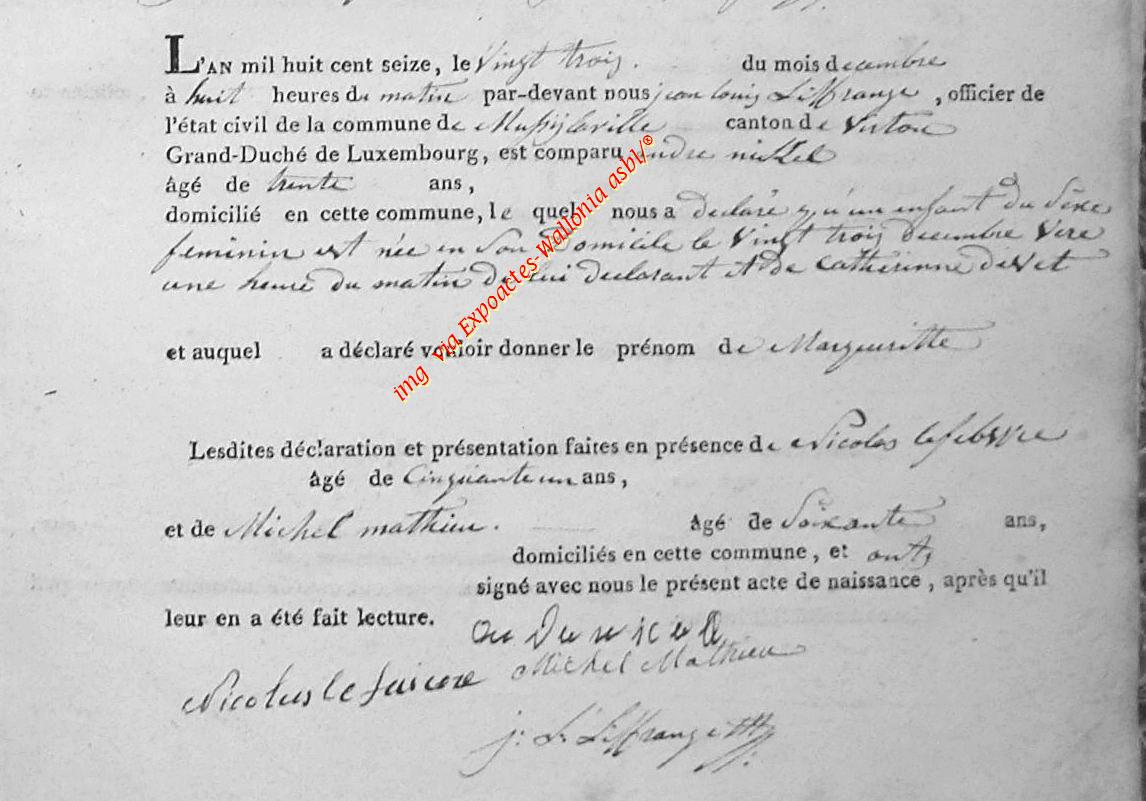 L'AN mil huit cent seize, le Vingt trois. du mois decembre
à huit heures du matin par-devant nous jean louis Liffrange, officier de
l'état civil de la commune de Mussylaville canton de Virton
Grand-Duché de Luxembourg, est comparu andre nickel
âgé de trente ans,
domicilié en cette commune, le quel nous a declaré qu'un enfant du Sexe
feminin est née en Son domicile le Vingt trois decembre Vere
une heure du matin de lui declarant et de Catherinne devet
et auquel a déclaré vouloir donner le prénom de Margueritte
Lesdites déclaration et présentation faites en présence de Nicolas lefebvre
âgé de Cinquante un ans,
et de Michel mathieu. âgé de Soixante ans,
domiciliés en cette commune, et onts
signé avec nous le présent acte de naissance, après qu'il
leur en a été fait lecture.
Michel Mathieu
Nicolas le
j: L: Liffrange
img via Expoactes-Wallonia asbl/®